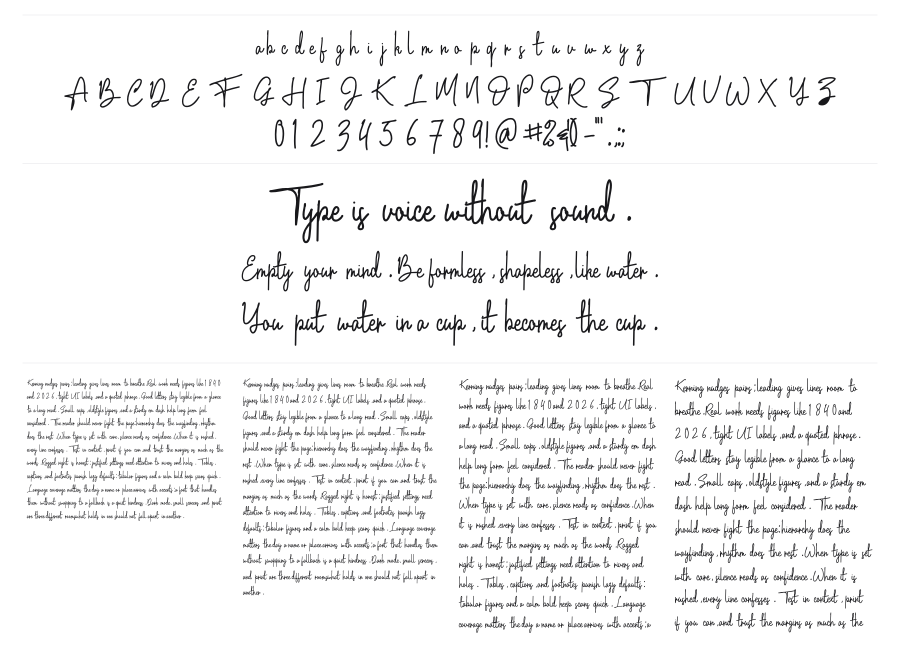 a b c d e f g h i j k l m n o p q r s t u v w x y z
A B C D E F G H I J K L M N O P Q R S T U V W X Y Z
0 1 2 3 4 5 6 7 8 9 ! @ # % & ( ) - " ' . , : ;
Type is voice without sound .
Empty your mind . Be formless , shapeless , like water .
You put water in a cup , it becomes the cup .
Kerning nudges pairs ; leading gives lines room to breathe . Real work needs figures like 1 8 4 0
and 2 0 2 6 , tight UI labels , and a quoted phrase . Good letters stay legible from a glance
to a long read . Small caps , oldstyle figures , and a sturdy em dash help long form feel
considered . The reader should never fight the page ; hierarchy does the wayfinding , rhythm
does the rest . When type is set with care , silence reads as confidence . When it is rushed ,
every line confesses . Test in context , print if you can , and trust the margins as much as the
words . Ragged right is honest ; justified settings need attention to rivers and holes . Tables ,
captions , and footnotes punish lazy defaults ; tabular figures and a calm bold keep scans quick .
Language coverage matters the day a name or place arrives with accents ; a font that handles
them without swapping to a fallback is a quiet kindness . Dark mode , small screens , and print
are three different rooms ; what holds in one should not fall apart in another .
Kerning nudges pairs ; leading gives lines room to breathe . Real work needs
figures like 1 8 4 0 and 2 0 2 6 , tight UI labels , and a quoted phrase .
Good letters stay legible from a glance to a long read . Small caps , oldstyle
figures , and a sturdy em dash help long form feel considered . The reader
should never fight the page ; hierarchy does the wayfinding , rhythm does the
rest . When type is set with care , silence reads as confidence . When it is
rushed , every line confesses . Test in context , print if you can , and trust the
margins as much as the words . Ragged right is honest ; justified settings need
attention to rivers and holes . Tables , captions , and footnotes punish lazy
defaults ; tabular figures and a calm bold keep scans quick . Language coverage
matters the day a name or place arrives with accents ; a font that handles them
without swapping to a fallback is a quiet kindness . Dark mode , small screens ,
and print are three different rooms ; what holds in one should not fall apart in
another .
Kerning nudges pairs ; leading gives lines room to breathe . Real
work needs figures like 1 8 4 0 and 2 0 2 6 , tight UI labels ,
and a quoted phrase . Good letters stay legible from a glance to
a long read . Small caps , oldstyle figures , and a sturdy em dash
help long form feel considered . The reader should never fight
the page ; hierarchy does the wayfinding , rhythm does the rest .
When type is set with care , silence reads as confidence . When
it is rushed , every line confesses . Test in context , print if you
can , and trust the margins as much as the words . Ragged
right is honest ; justified settings need attention to rivers and
holes . Tables , captions , and footnotes punish lazy defaults ;
tabular figures and a calm bold keep scans quick . Language
coverage matters the day a name or place arrives with accents ; a
Kerning nudges pairs ; leading gives lines room to
breathe . Real work needs figures like 1 8 4 0 and
2 0 2 6 , tight UI labels , and a quoted phrase .
Good letters stay legible from a glance to a long
read . Small caps , oldstyle figures , and a sturdy em
dash help long form feel considered . The reader
should never fight the page ; hierarchy does the
wayfinding , rhythm does the rest . When type is set
with care , silence reads as confidence . When it is
rushed , every line confesses . Test in context , print
if you can , and trust the margins as much as the